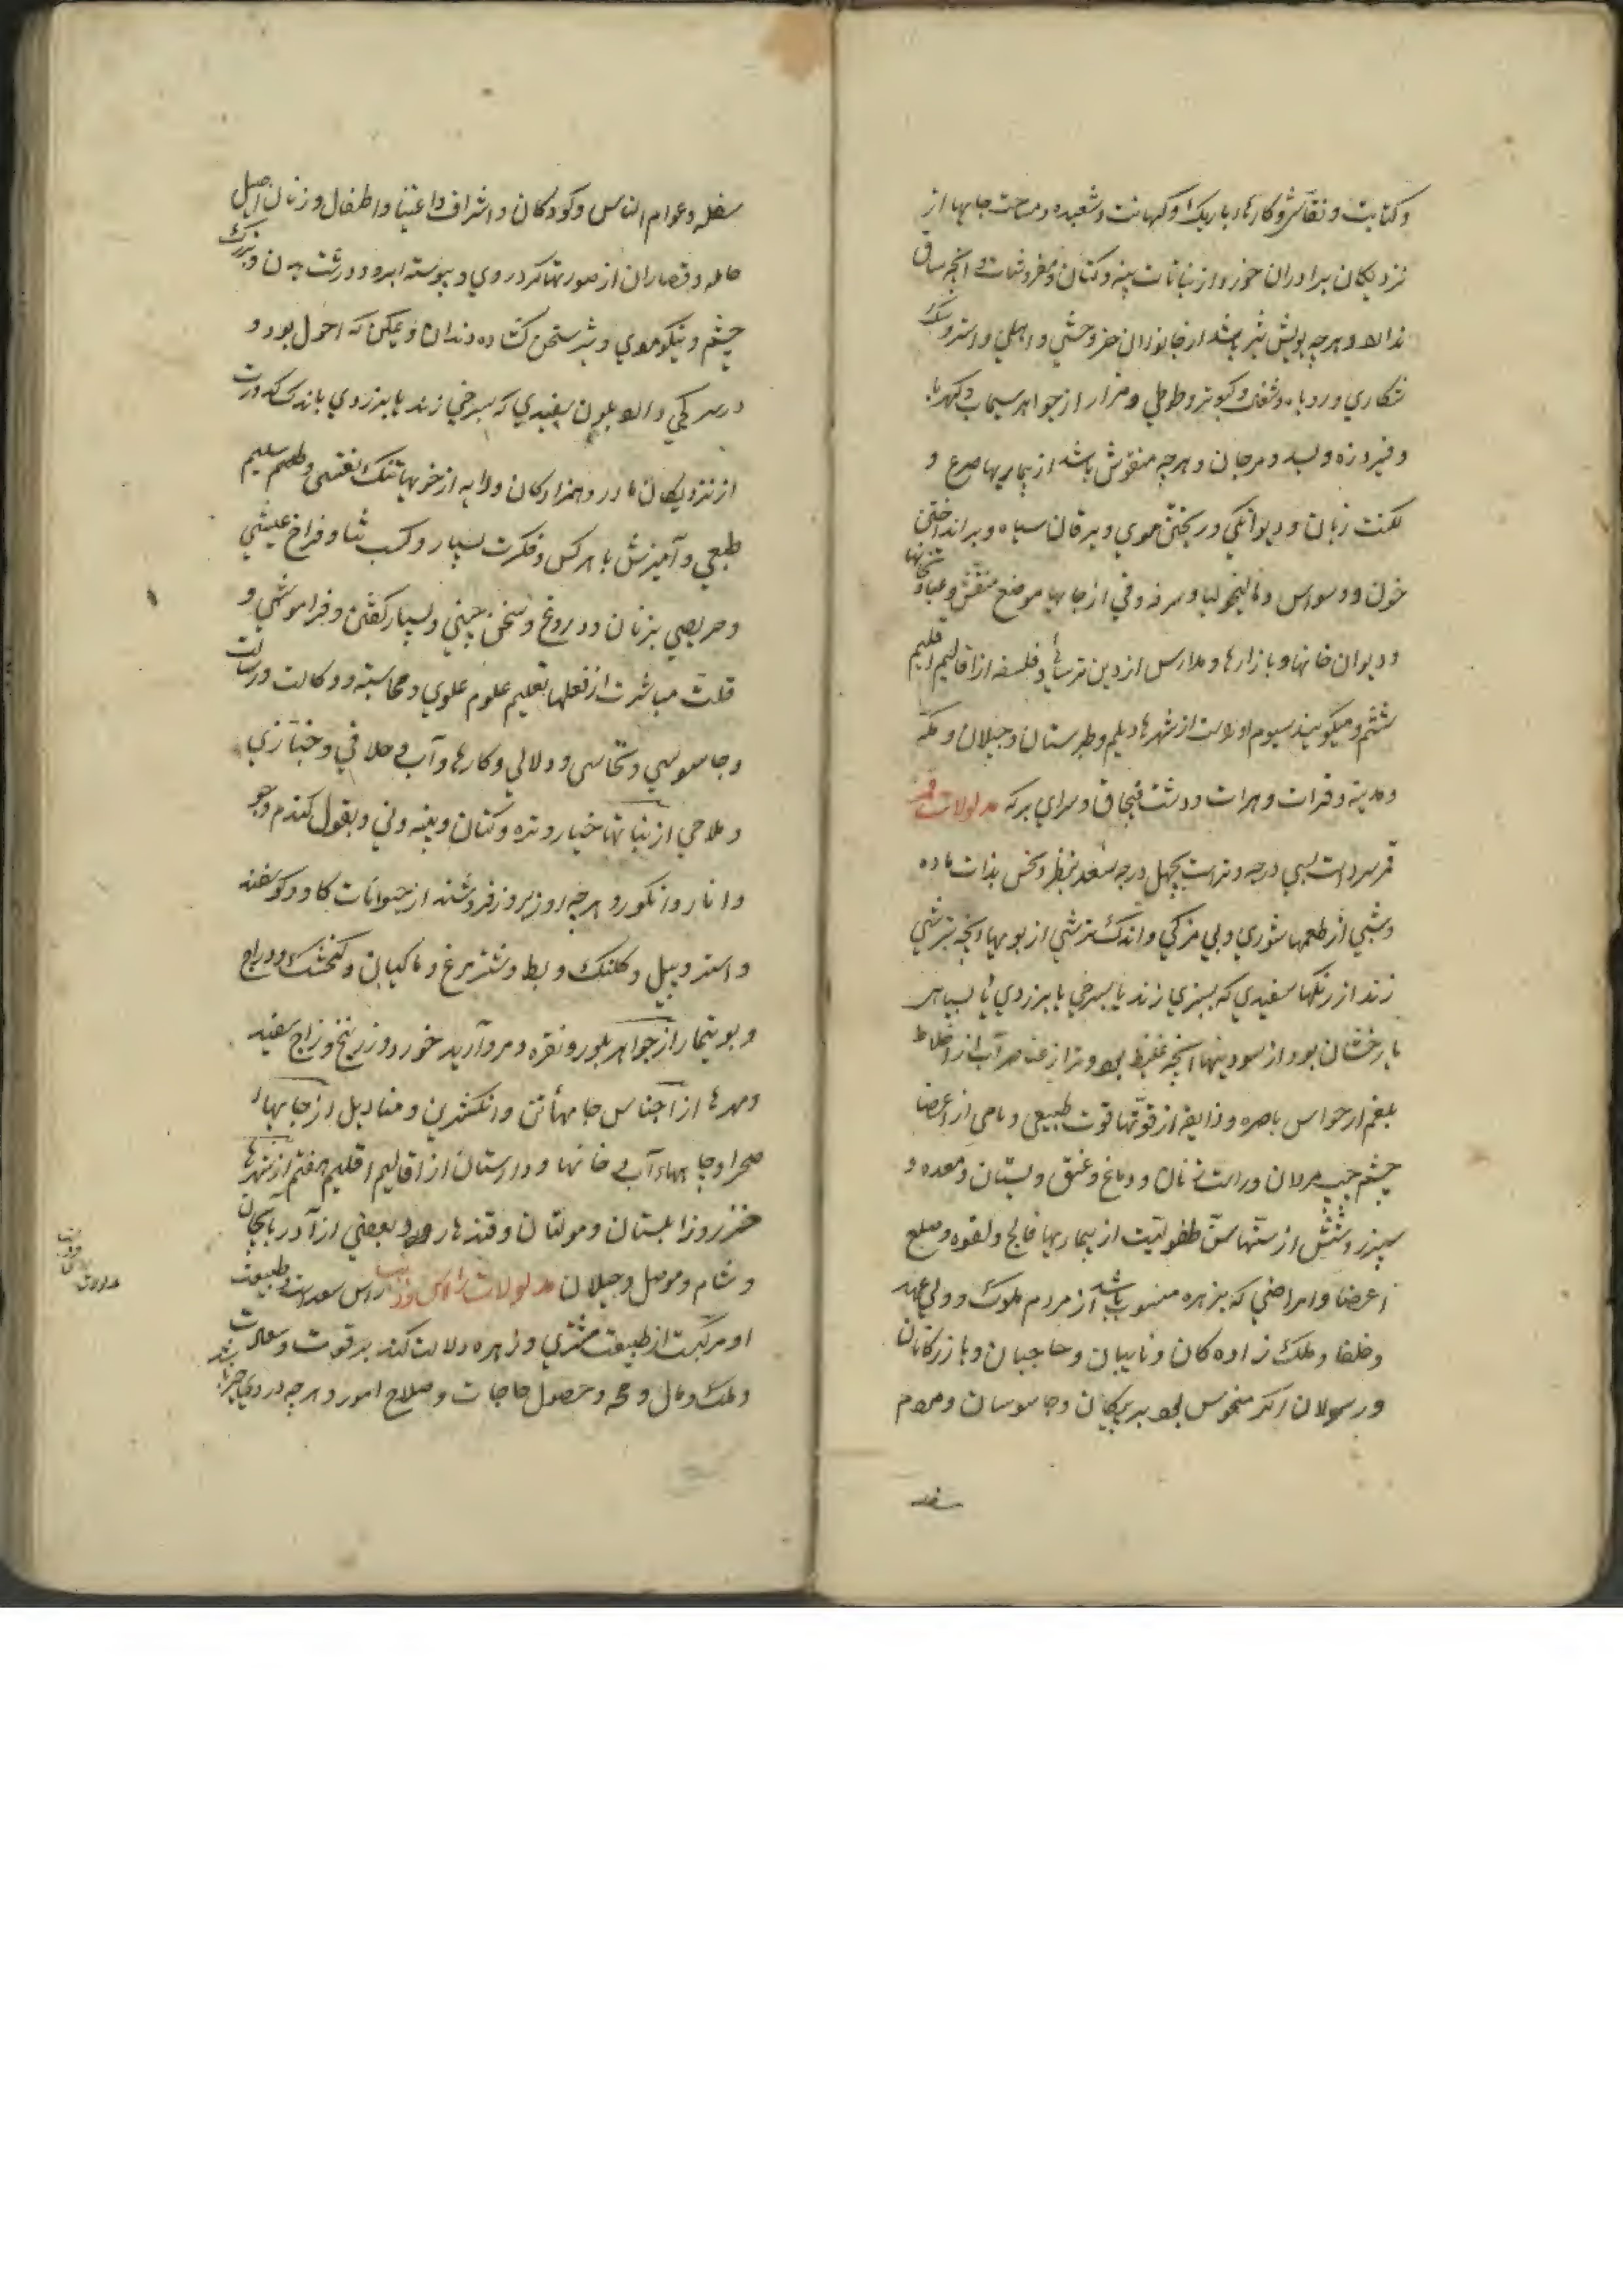 و کتابت و نقاشی و کارهاء باریک و کهانت و شعبده و مساحت جایها از
نزدیکان برادران خورد از نباتات پنبه و کتان و مفروشات و آنچه ساق
ندارد و هرچه بویش تیز باشد از جانوران خر وحشی و اهلی و استر و سک
شکاری و روباه و شغال و کبوتر و طوطی و هزار از جواهر سیماب و کهربا
و فیروزه و بسد و مرجان و هرچه منقوش باشد از بیماریها صرع و
لکنت زبان و دیوانکی و ریختن موی و یرقان سیاه و برانداختن
خون و وسواس و مالیخولیا و سرفه و قی از جایها موضع منقش و عبادتخانها
و دیوان خانها و بازارها و مدارس از دین ترسائی و فلسفه از اقالیم اقلیم
ششم و میکویند سیوم او راست از شهرها دیلم و طبرستان و جیلان و مکه
و مدینه و فرات و هرات و دشت قبچاق و سرای برکه مدلولات قمر
قمر سرد است بسی درجه و تر است بچهل درجه سعد بنظر و نحس بذات ماده
و شبی از طعمها شوری و بی مزکی و اندک ترشی از بویها آنچه بترشی
زند از رنکها سفیدی که بسبزی زند یا بسرخی یا بزردی یا بسیاهی
یا رخشان بود از سودنیها آنچه غلیظ بود و تر از عناصر آب از اخلاط
بلغم از حواس باصره و ذایقه از قوتها قوت طبیعی و نامی از اعضا
چشم چپ مردان و راست زنان و دماغ و عنق و پستان و معده و
سپرز و شش از سنها سن طفولیت از بیماریها فالج و لقوه و صلع
اعضا و امراضی که بزهره منسوب باشد از مردم ملوک و ولی عهد
و خلفا و ملک زاده کان و نایبان و حاجبان و بازرکانان
و رسولان اکر منحوس بود بر پیکان و جاسوسان و مردم
سفله
سفله و عوام الناس و کودکان و اشراف و اغنیا و اطفال و زنان اصیل
حامله و قصاران از صورتها کرد روی و پیوسته ابرو و درشت بدن و بزرک
چشم و نیکو موی و شیرسخن کشاده دندان و ممکن که احول بود و
درسرکجی دارد بلون سفیدی که بسرخی زند یا بزردی باندک کدورت
از نزدیکان مادر و همزادکان و دایه از خویها تنک نفسی و طعم سلیم
طبعی و آمیزش با هرکس و فکرت بسیار و کسب ثنا و فراخ عیشی
و حریصی بزنان و دروغ و سخن چینی و بسیار کفتن و فراموشی و
قلت مباشرت از فعلها تعلیم علوم علوی و محاسبه و وکالت و رسالت
و جاسوسی و نخاسی و دلالی و کارهاء آب و حلاقی و خبازی
و ملاحی از نباتها خیار و تره و کتان و پنبه و نی و بقول کندم و جو
و انار و انکور و هرچه روز بروز فروشند از حیوانات کاو و کوسفند
و استر و پیل و کلنک و بط و شترمرغ و ماکیان و کنجشک و دراج
و بوتیمار از جواهر بلور و نقره و مروارید خورد و زرنیخ و زاج سفید
و مهرها از اجناس جامهاء تن و انکشترین و منادیل از جایها
صحرا و جایهاء آب و خانها و دارستان از اقالیم اقلیم هفتم از شهرها
خزر و زابلستان و مولتان و قندهار و بعضی از آذربایجان
و شام و موصل و جیلان مدلولات راس و ذنب راس سعد است و طبیعت
او مرکبت از طبیعت مشتری و زهره دلالت کند بر قوت و سعادت
و ملک و مال و حصول حاجات و صلاح امور و هرچه در وی خیر باشد
مدلولات